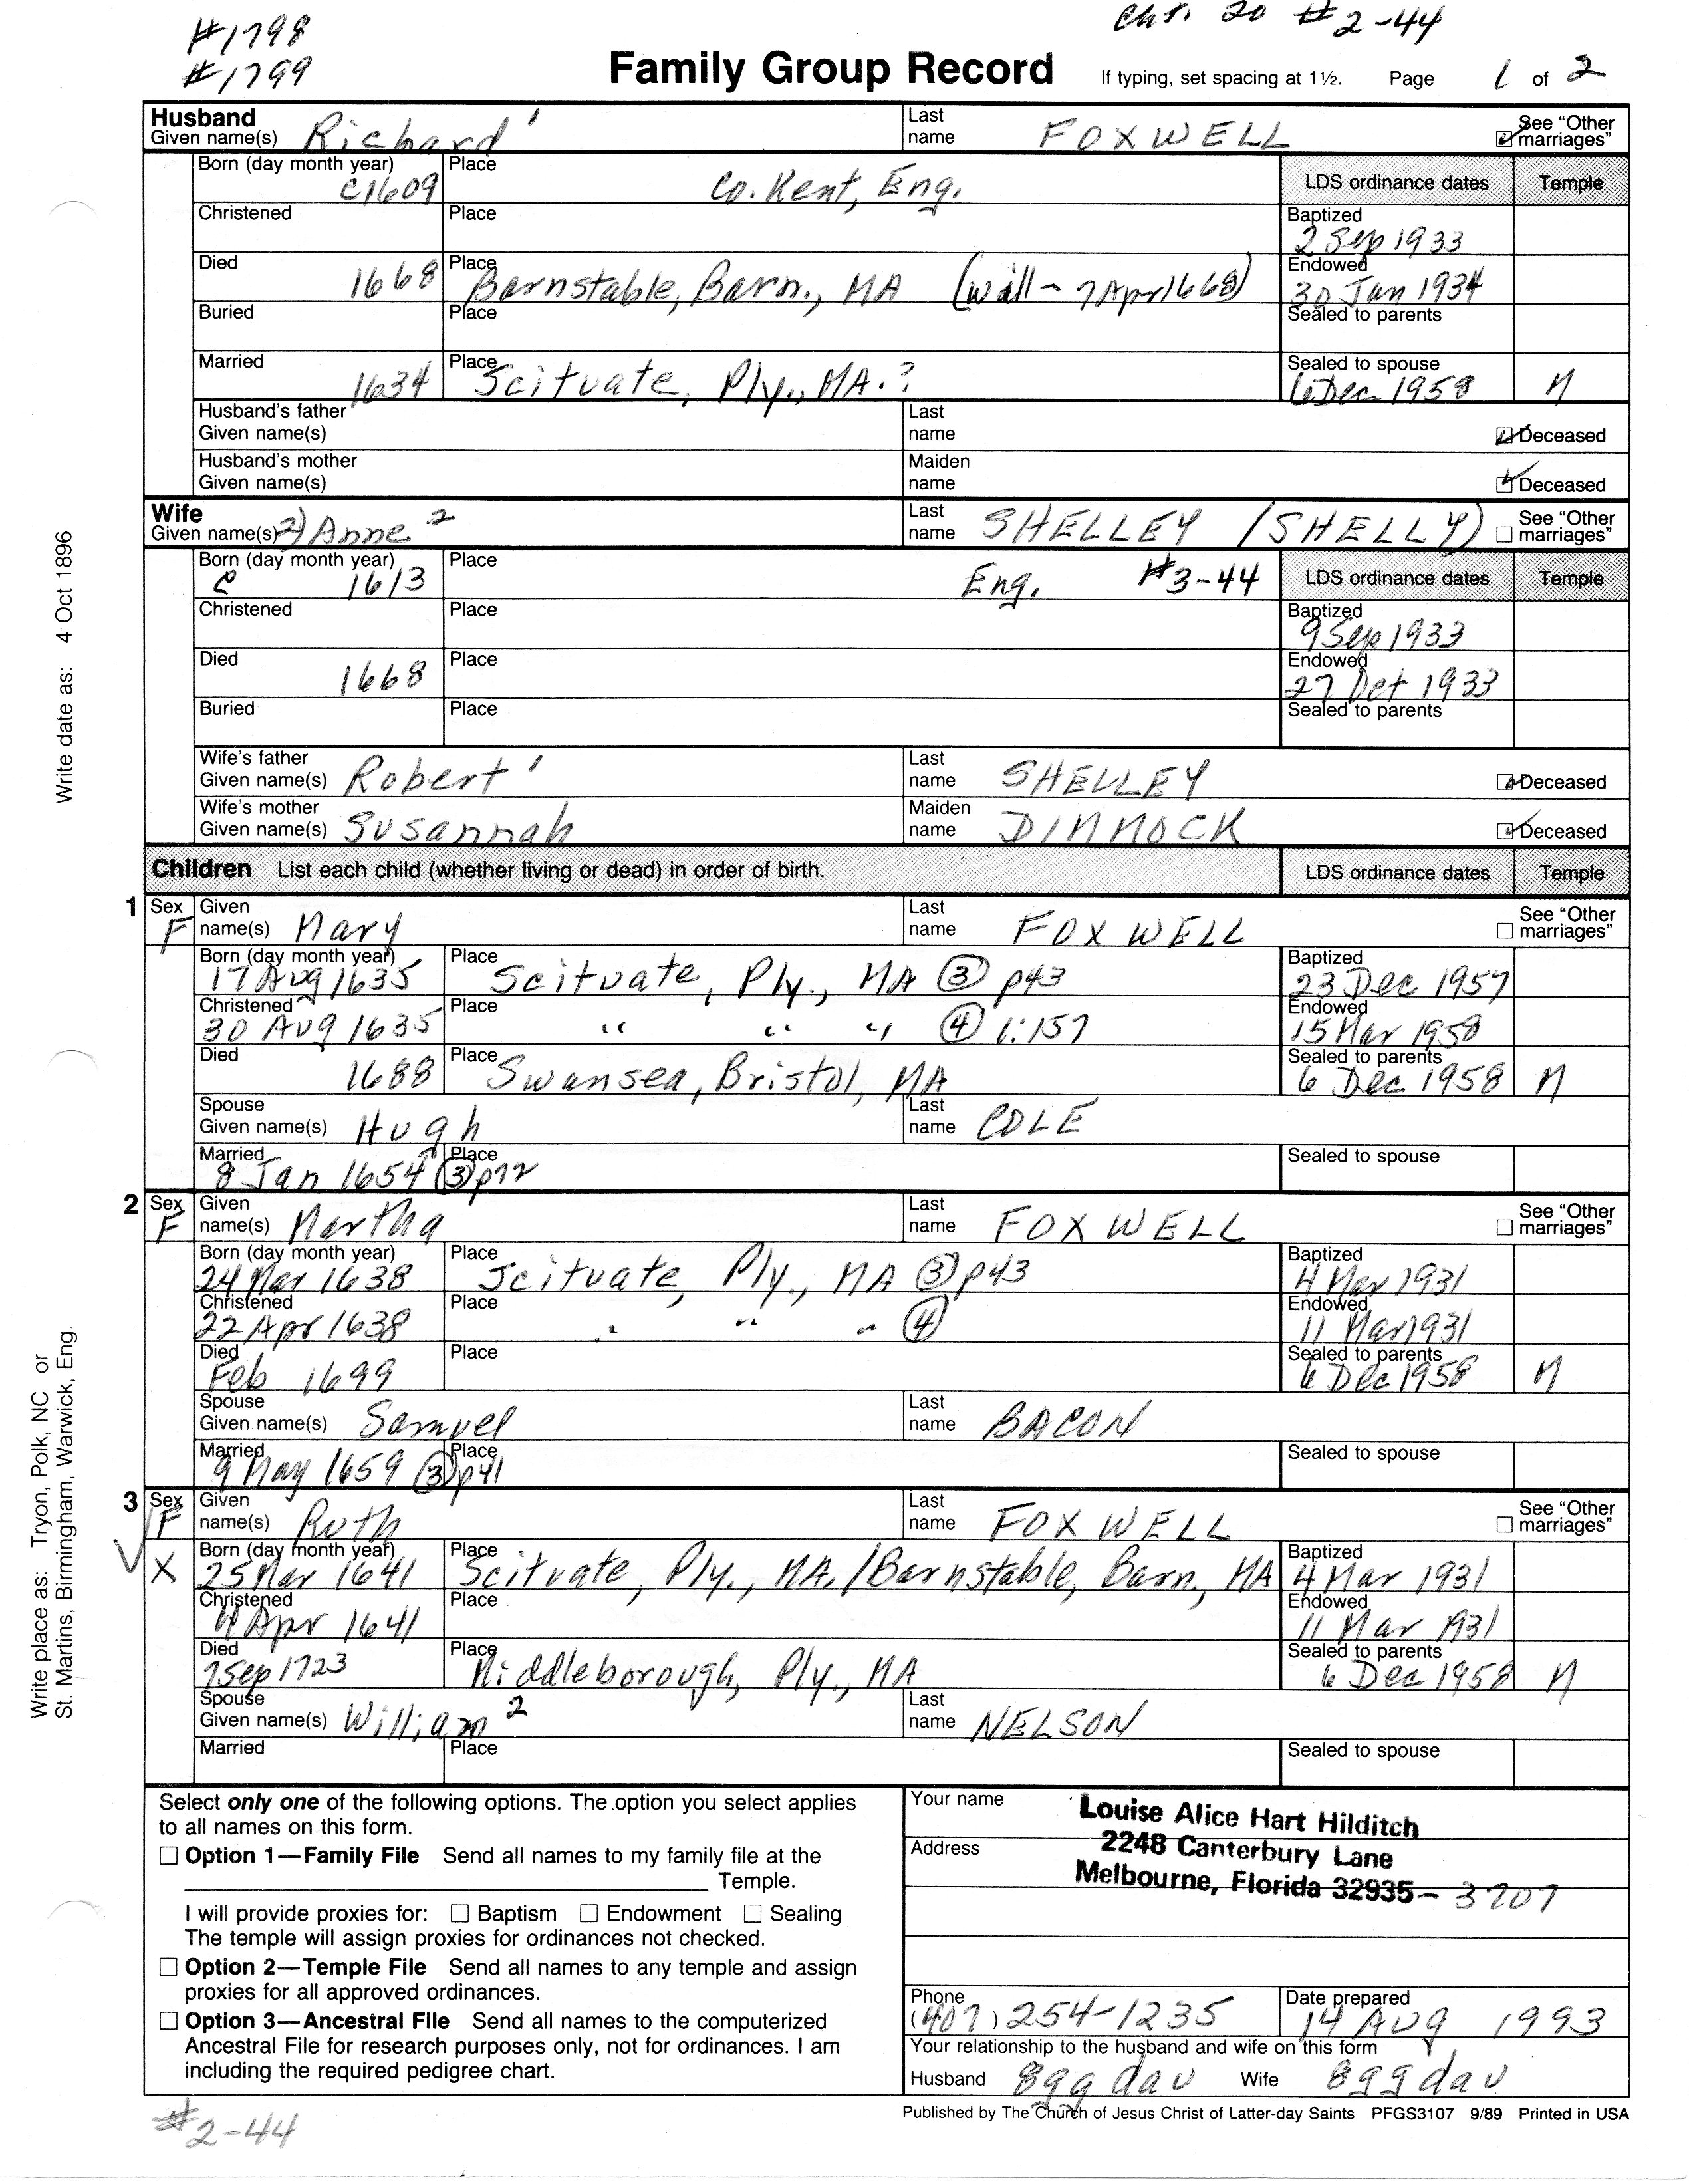 #1798
#1799
Chr. 20 #2-44
Family Group Record
If typing, set spacing at 1½. Page 1 of 2
Husband
Given name(s) Richard ¹ Last name FOXWELL See "Other marriages"
Born (day month year) c1609 Place Co. Kent, Eng. LDS ordinance dates Temple
Christened Place Baptized 2 Sep 1933
Died 1668 Place Barnstable, Barn., MA (Will - 7 Apr 1668) Endowed 30 Jan 1934
Buried Place Sealed to parents
Married 1634 Place Scituate, Ply., MA.? Sealed to spouse 6 Dec 1958 M
Husband's father Given name(s) Last name Deceased
Husband's mother Given name(s) Maiden name Deceased
Wife
Given name(s) 2) Anne ² Last name SHELLEY (SHELLY) See "Other marriages"
Born (day month year) c 1613 Place Eng. #3-44 LDS ordinance dates Temple
Christened Place Baptized 9 Sep 1933
Died 1668 Place Endowed 27 Oct 1933
Buried Place Sealed to parents
Wife's father Given name(s) Robert ¹ Last name SHELLEY Deceased
Wife's mother Given name(s) Susannah Maiden name DIMMOCK Deceased
Children List each child (whether living or dead) in order of birth. LDS ordinance dates Temple
1 Sex F Given name(s) Mary Last name FOXWELL See "Other marriages"
Born (day month year) 17 Aug 1635 Place Scituate, Ply., MA ③ p43 Baptized 23 Dec 1957
Christened 30 Aug 1635 Place " " " ④ 1:157 Endowed 15 Mar 1958
Died 1688 Place Swansea, Bristol, MA Sealed to parents 6 Dec 1958 M
Spouse Given name(s) Hugh Last name COLE
Married 8 Jan 1654 ③ p72 Place Sealed to spouse
2 Sex F Given name(s) Martha Last name FOXWELL See "Other marriages"
Born (day month year) 24 Mar 1638 Place Scituate, Ply., MA ③ p43 Baptized 4 Mar 1931
Christened 22 Apr 1638 Place " " " ④ Endowed 11 Mar 1931
Died Feb 1699 Place Sealed to parents 6 Dec 1958 M
Spouse Given name(s) Samuel Last name BACON
Married 9 May 1659 ③ p41 Place Sealed to spouse
3 Sex F Given name(s) Ruth Last name FOXWELL See "Other marriages"
X Born (day month year) 25 Mar 1641 Place Scituate, Ply., MA./Barnstable, Barn., MA Baptized 4 Mar 1931
Christened 4 Apr 1641 Place Endowed 11 Mar 1931
Died 7 Sep 1723 Place Middleborough, Ply., MA Sealed to parents 6 Dec 1958 M
Spouse Given name(s) William ² Last name NELSON
Married Place Sealed to spouse
Select only one of the following options. The option you select applies
to all names on this form.
Option 1—Family File Send all names to my family file at the
Temple.
I will provide proxies for: Baptism Endowment Sealing
The temple will assign proxies for ordinances not checked.
Option 2—Temple File Send all names to any temple and assign
proxies for all approved ordinances.
Option 3—Ancestral File Send all names to the computerized
Ancestral File for research purposes only, not for ordinances. I am
including the required pedigree chart.
Your name Louise Alice Hart Hilditch
Address 2248 Canterbury Lane
Melbourne, Florida 32935 - 3707
Phone (407) 254-1235 Date prepared 14 AUG 1993
Your relationship to the husband and wife on this form
Husband 8gg dau Wife 8gg dau
Published by The Church of Jesus Christ of Latter-day Saints PFGS3107 9/89 Printed in USA
#2-44
Write date as: 4 Oct 1896
Write place as: Tryon, Polk, NC or
St. Martins, Birmingham, Warwick, Eng.